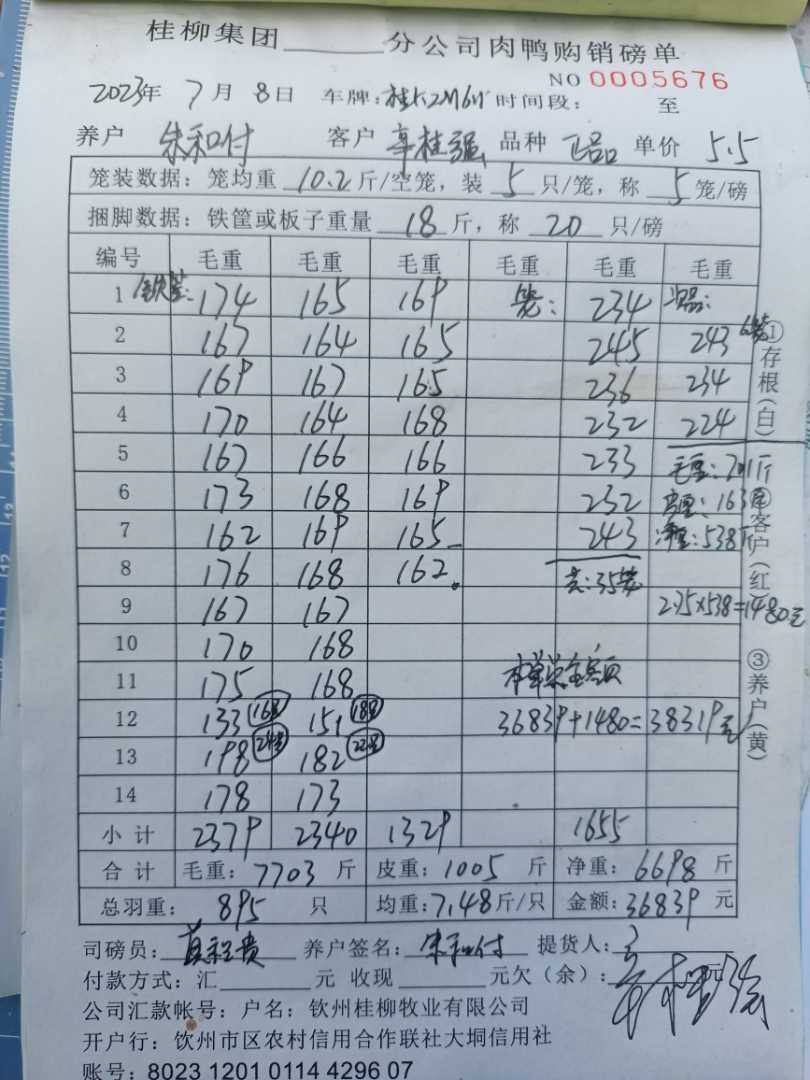 桂柳集团______分公司肉鸭购销磅单
NO 0005676
2023年 7月 8日 车牌: 时间段: 至
养户 朱和付 客户 辛桂强 品种 正品 单价 5.5
笼装数据:笼均重 10.2 斤/空笼,装 5 只/笼,称 5 笼/磅
捆脚数据:铁筐或板子重量 18 斤,称 20 只/磅
编号 毛重 毛重 毛重 毛重 毛重 毛重
1 铁筐: 174 165 169 笼: 234
2 167 164 165 245 243 6笼
3 169 167 165 236 234
4 170 164 168 232 224
5 167 166 166 233 毛重:701斤
6 173 168 169 232 163
7 162 169 165 243 净重:538斤
8 176 168 162. 共:35笼
9 167 167 2.75×538=1480元
10 170 168
11 175 168 本单总金额
12 133 16只 151 18只 36839+1480=38319元
13 198 24只 182 22只
14 178 173
小计 2379 2340 1329 1655
合计 毛重:7703 斤 皮重:1005 斤 净重:6698 斤
总羽重: 895 只 均重:7.48斤/只 金额:36839 元
司磅员: 养户签名:朱和付 提货人:
付款方式:汇______元 收现______元欠(余):______元
公司汇款帐号:户名:钦州桂柳牧业有限公司
开户行:钦州市区农村信用合作联社大垌信用社
账号:8023 1201 0114 4296 07
①存根(白)
②客户(红)
③养户(黄)